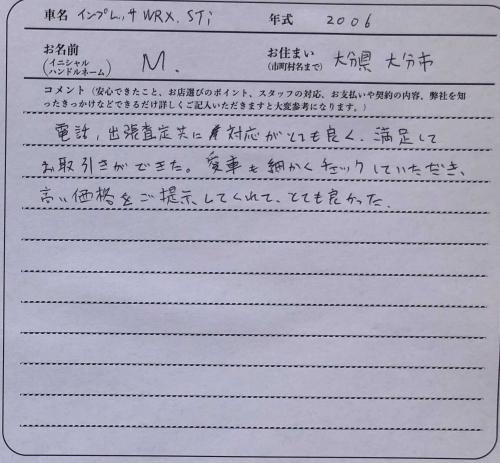 車名 インプレッサ WRX. STi 年式 2006
お名前 (イニシャル ハンドルネーム) M. お住まい (市町村名まで) 大分県 大分市
コメント(安心できたこと、お店選びのポイント、スタッフの対応、お支払いや契約の内容、弊社を知
ったきっかけなどできるだけ詳しくご記入いただきますと大変参考になります。)
電話, 出張査定共に 対応がとても良く、満足して
お取引きができた。愛車も細かくチェックしていただき、
高い価格をご提示してくれて、とても良かった.